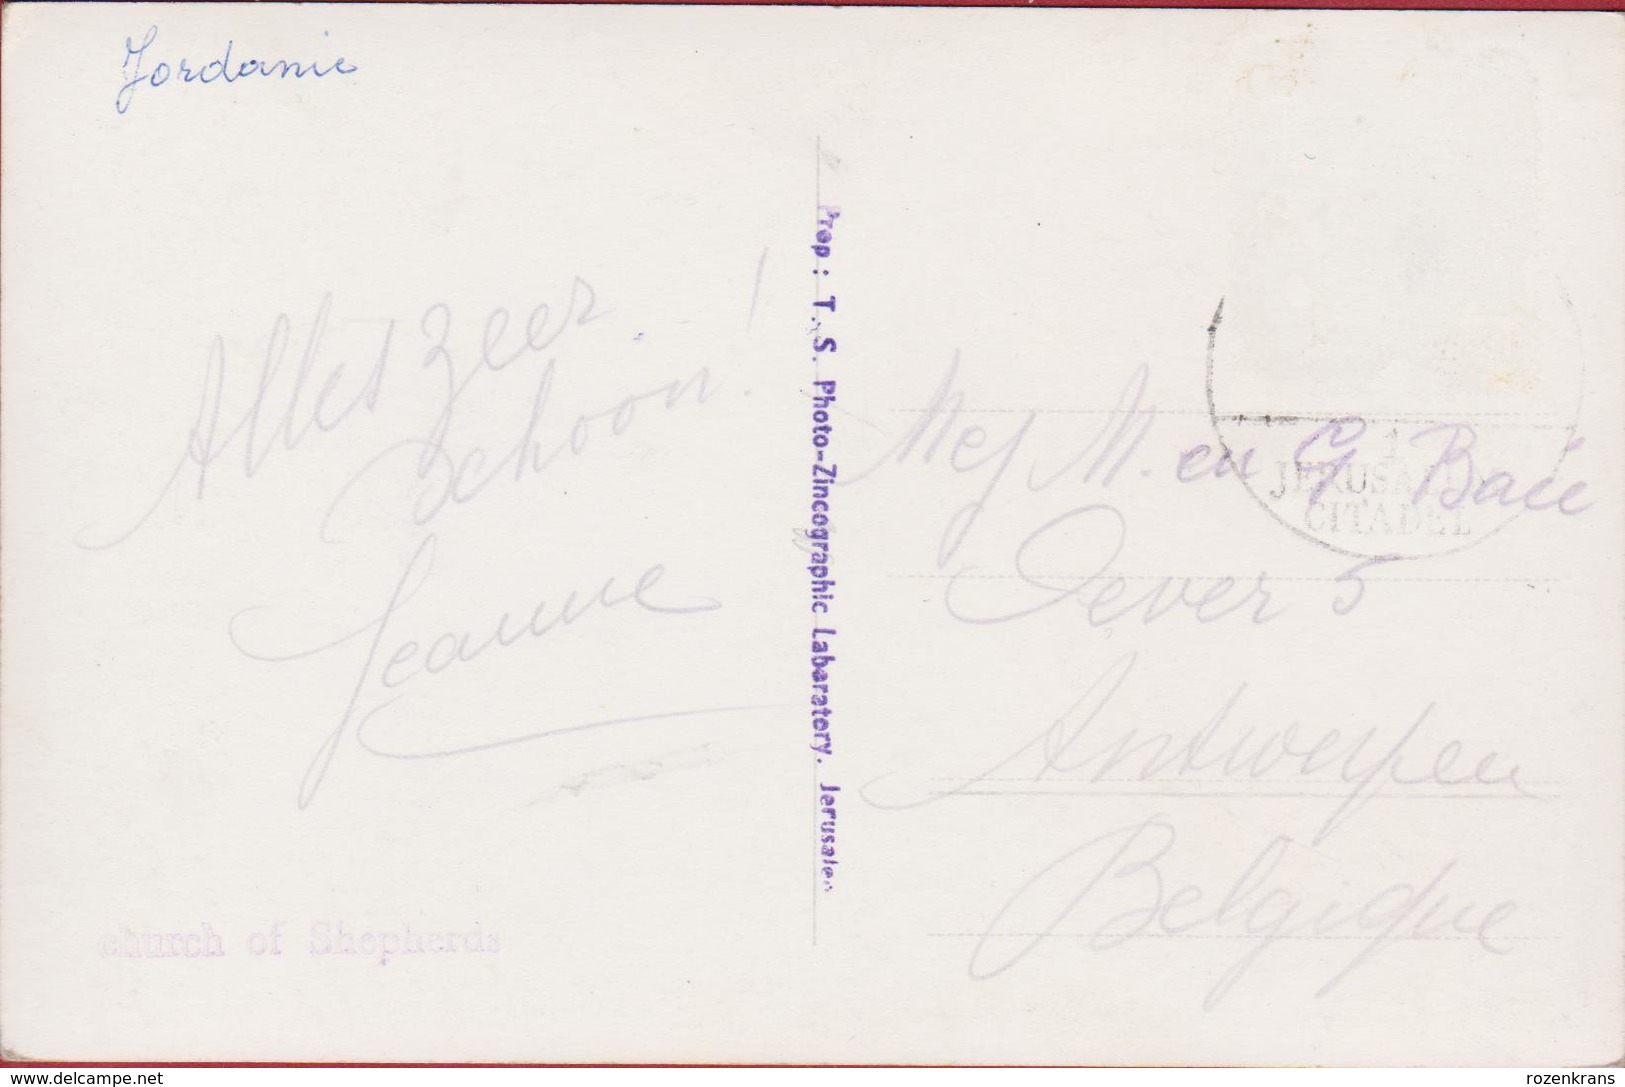 Jordanie
Alles zeer
schoon!
Jeanne
church of Shepherds
Prop: T. S. Photo-Zincographic Labaratory. Jerusalem
1
JERUSALEM
CITADEL
Mej M. en G Baū
Oever 5
Antwerpen
Belgique
www.delcampe.net
rozenkrans